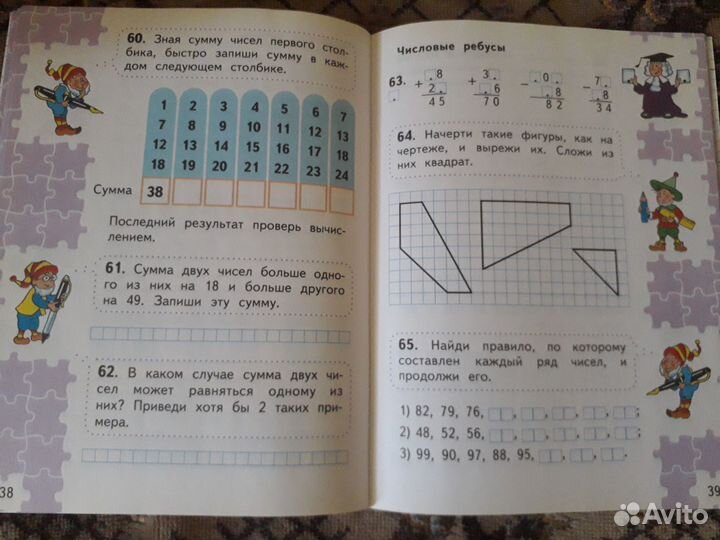 60. Зная сумму чисел первого стол-
бика, быстро запиши сумму в каж-
дом следующем столбике.
1 2 3 4 5 6 7
7 8 9 10 11 12 13
12 13 14 15 16 17 18
18 19 20 21 22 23 24
Сумма 38
Последний результат проверь вычис-
лением.
61. Сумма двух чисел больше одно-
го из них на 18 и больше другого
на 49. Запиши эту сумму.
62. В каком случае сумма двух чи-
сел может равняться одному из
них? Приведи хотя бы 2 таких при-
мера.
38
Числовые ребусы
63. + .8 + 3. - .0. - 7.
2. .6 .8 .8
45 70 82 34
64. Начерти такие фигуры, как на
чертеже, и вырежи их. Сложи из
них квадрат.
65. Найди правило, по которому
составлен каждый ряд чисел, и
продолжи его.
1) 82, 79, 76, , , , , ;
2) 48, 52, 56, , , , , ;
3) 99, 90, 97, 88, 95, , , , .
39
Avito